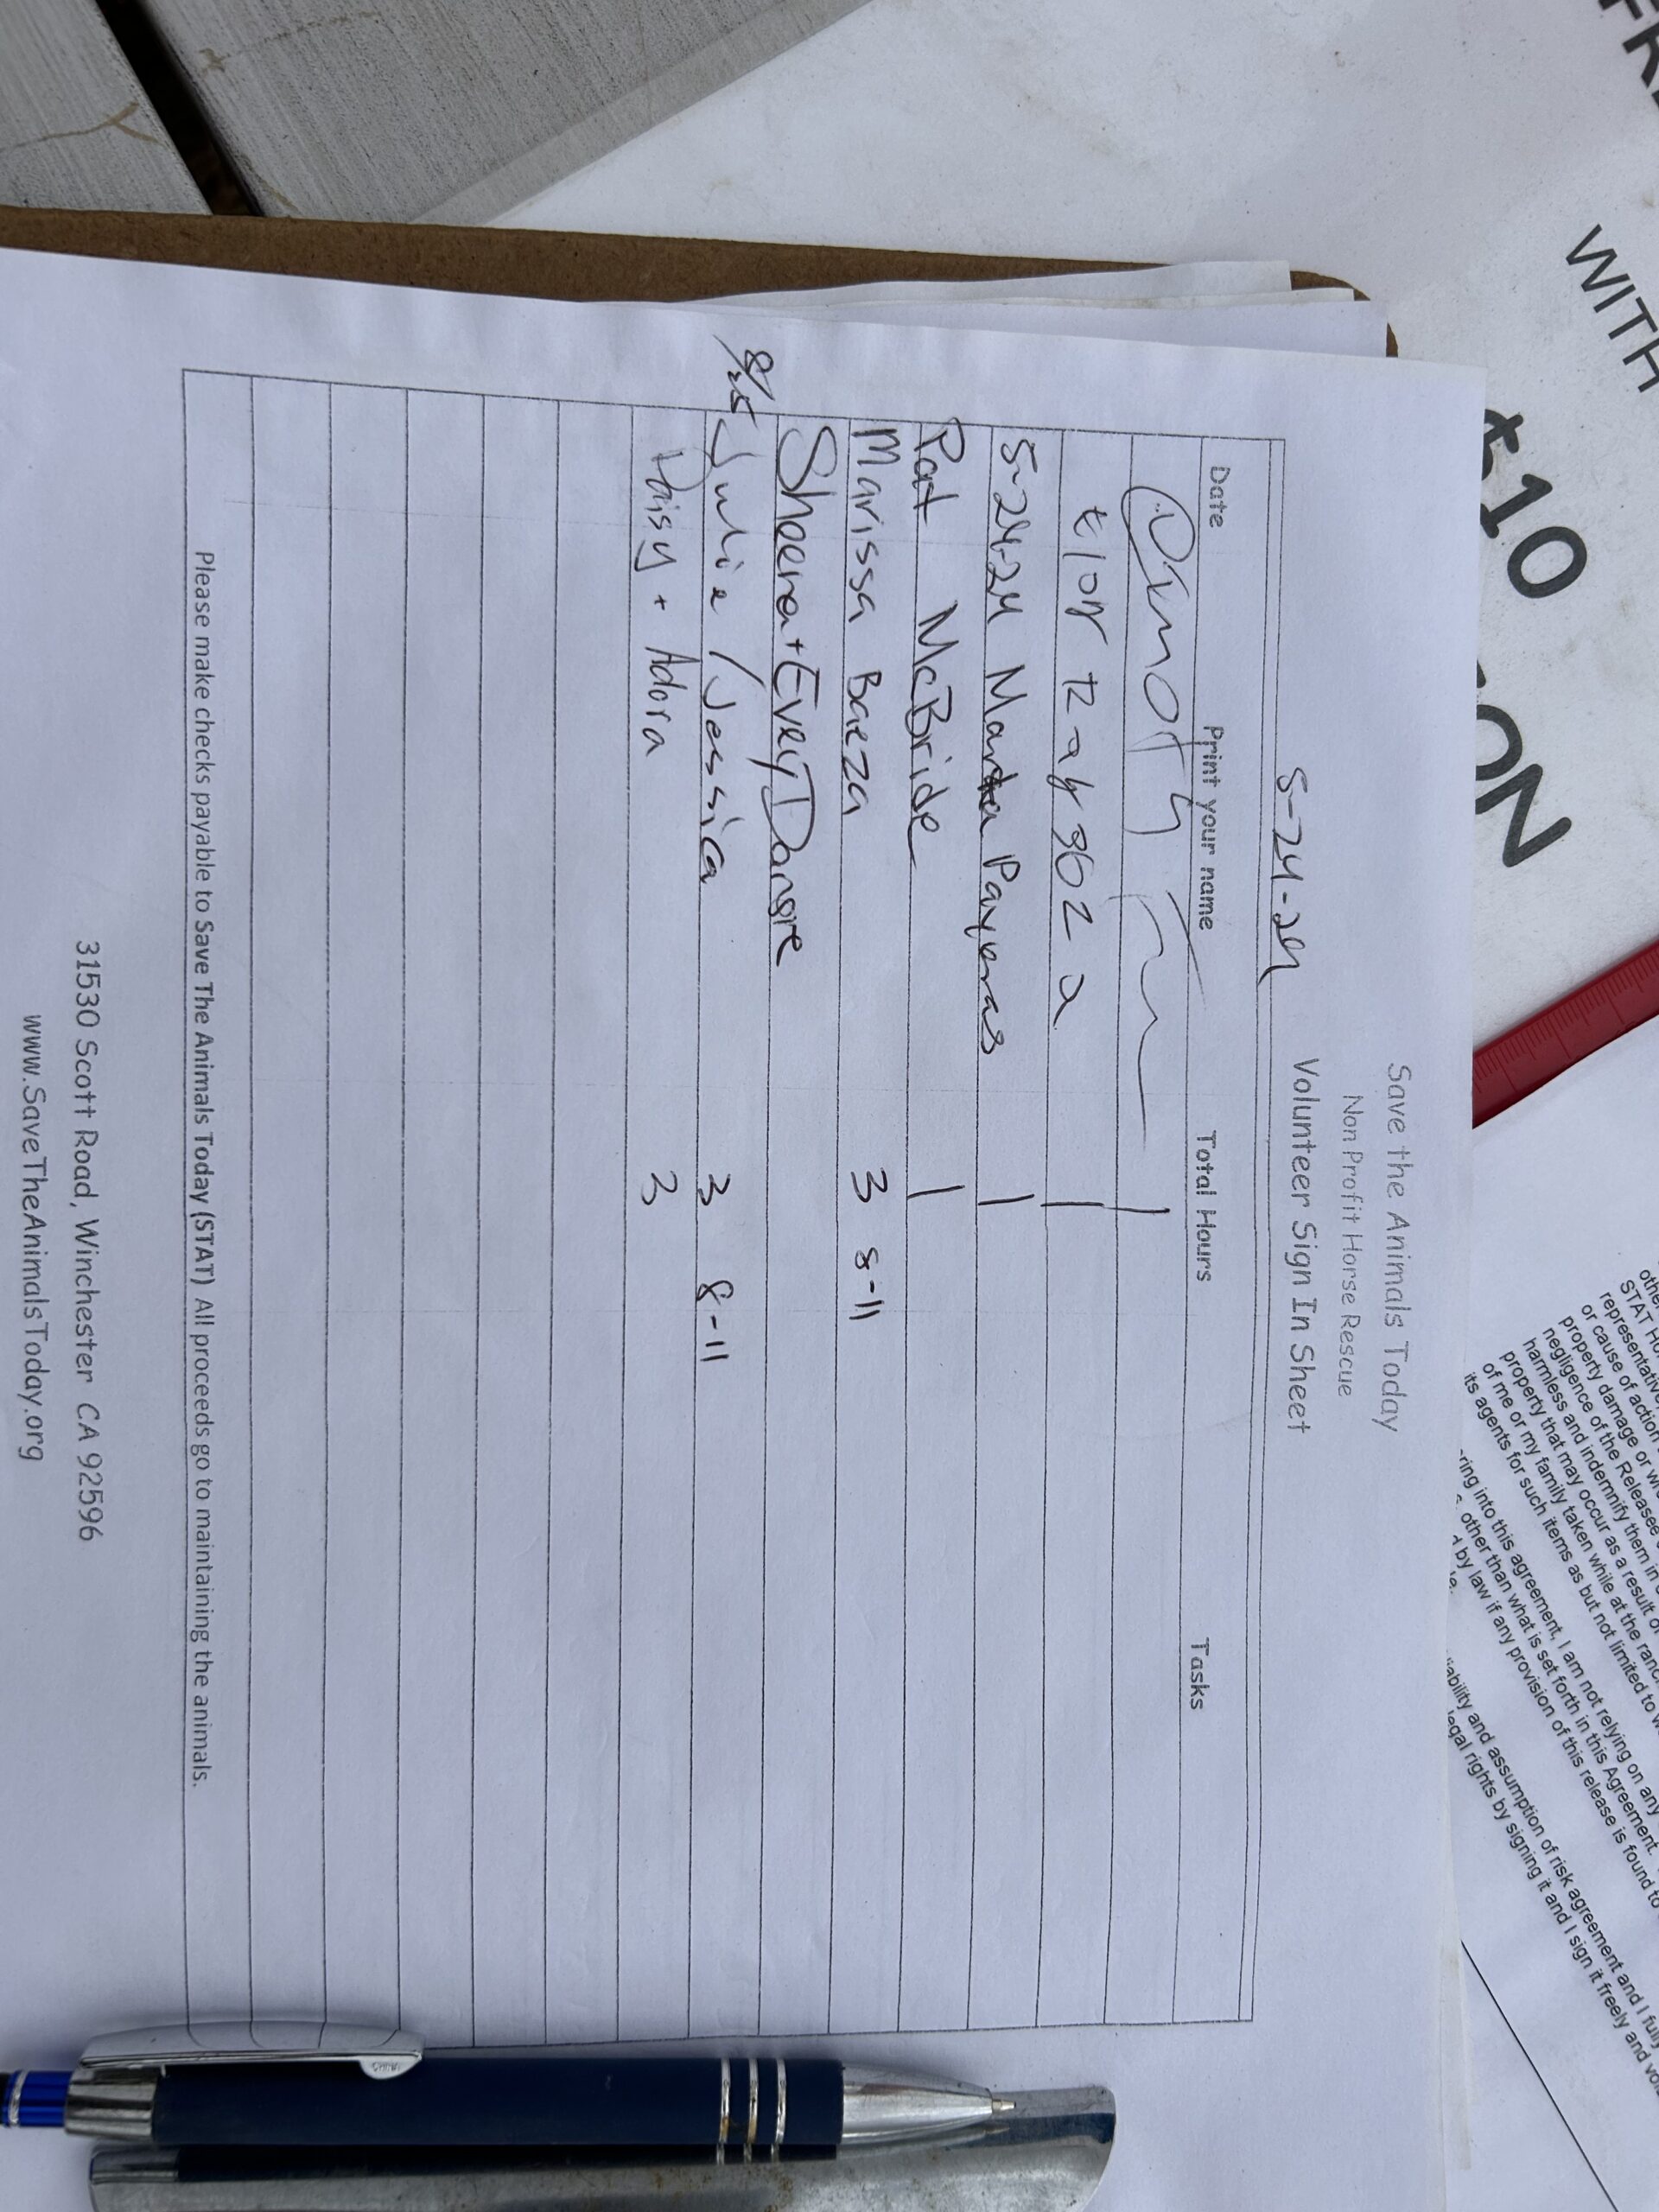 Save the Animals Today
Non Profit Horse Rescue
Volunteer Sign In Sheet
5-24-24
Date Print your name Total Hours Tasks
1
1
5-24-24 Martha Payeras 1
Pat McBride 1
Marissa Baeza 3 8-11
Sheena + Evey
Julie / Jessica 3 8-11
Daisy + Adora 3
Please make checks payable to Save The Animals Today (STAT) All proceeds go to maintaining the animals.
31530 Scott Road, Winchester CA 92596
www.SaveTheAnimalsToday.org
WITH
$10
STAT
representative
or cause of action
property damage or
negligence of the Releasee
harmless and indemnify them in
property that may occur as a result of
of me or my family taken while at the
its agents for such items as but not limited to
into this agreement, I am not relying on any
other than what is set forth in this Agreement.
by law if any provision of this release is found to
liability and assumption of risk agreement and I
legal rights by signing it and I sign it freely and